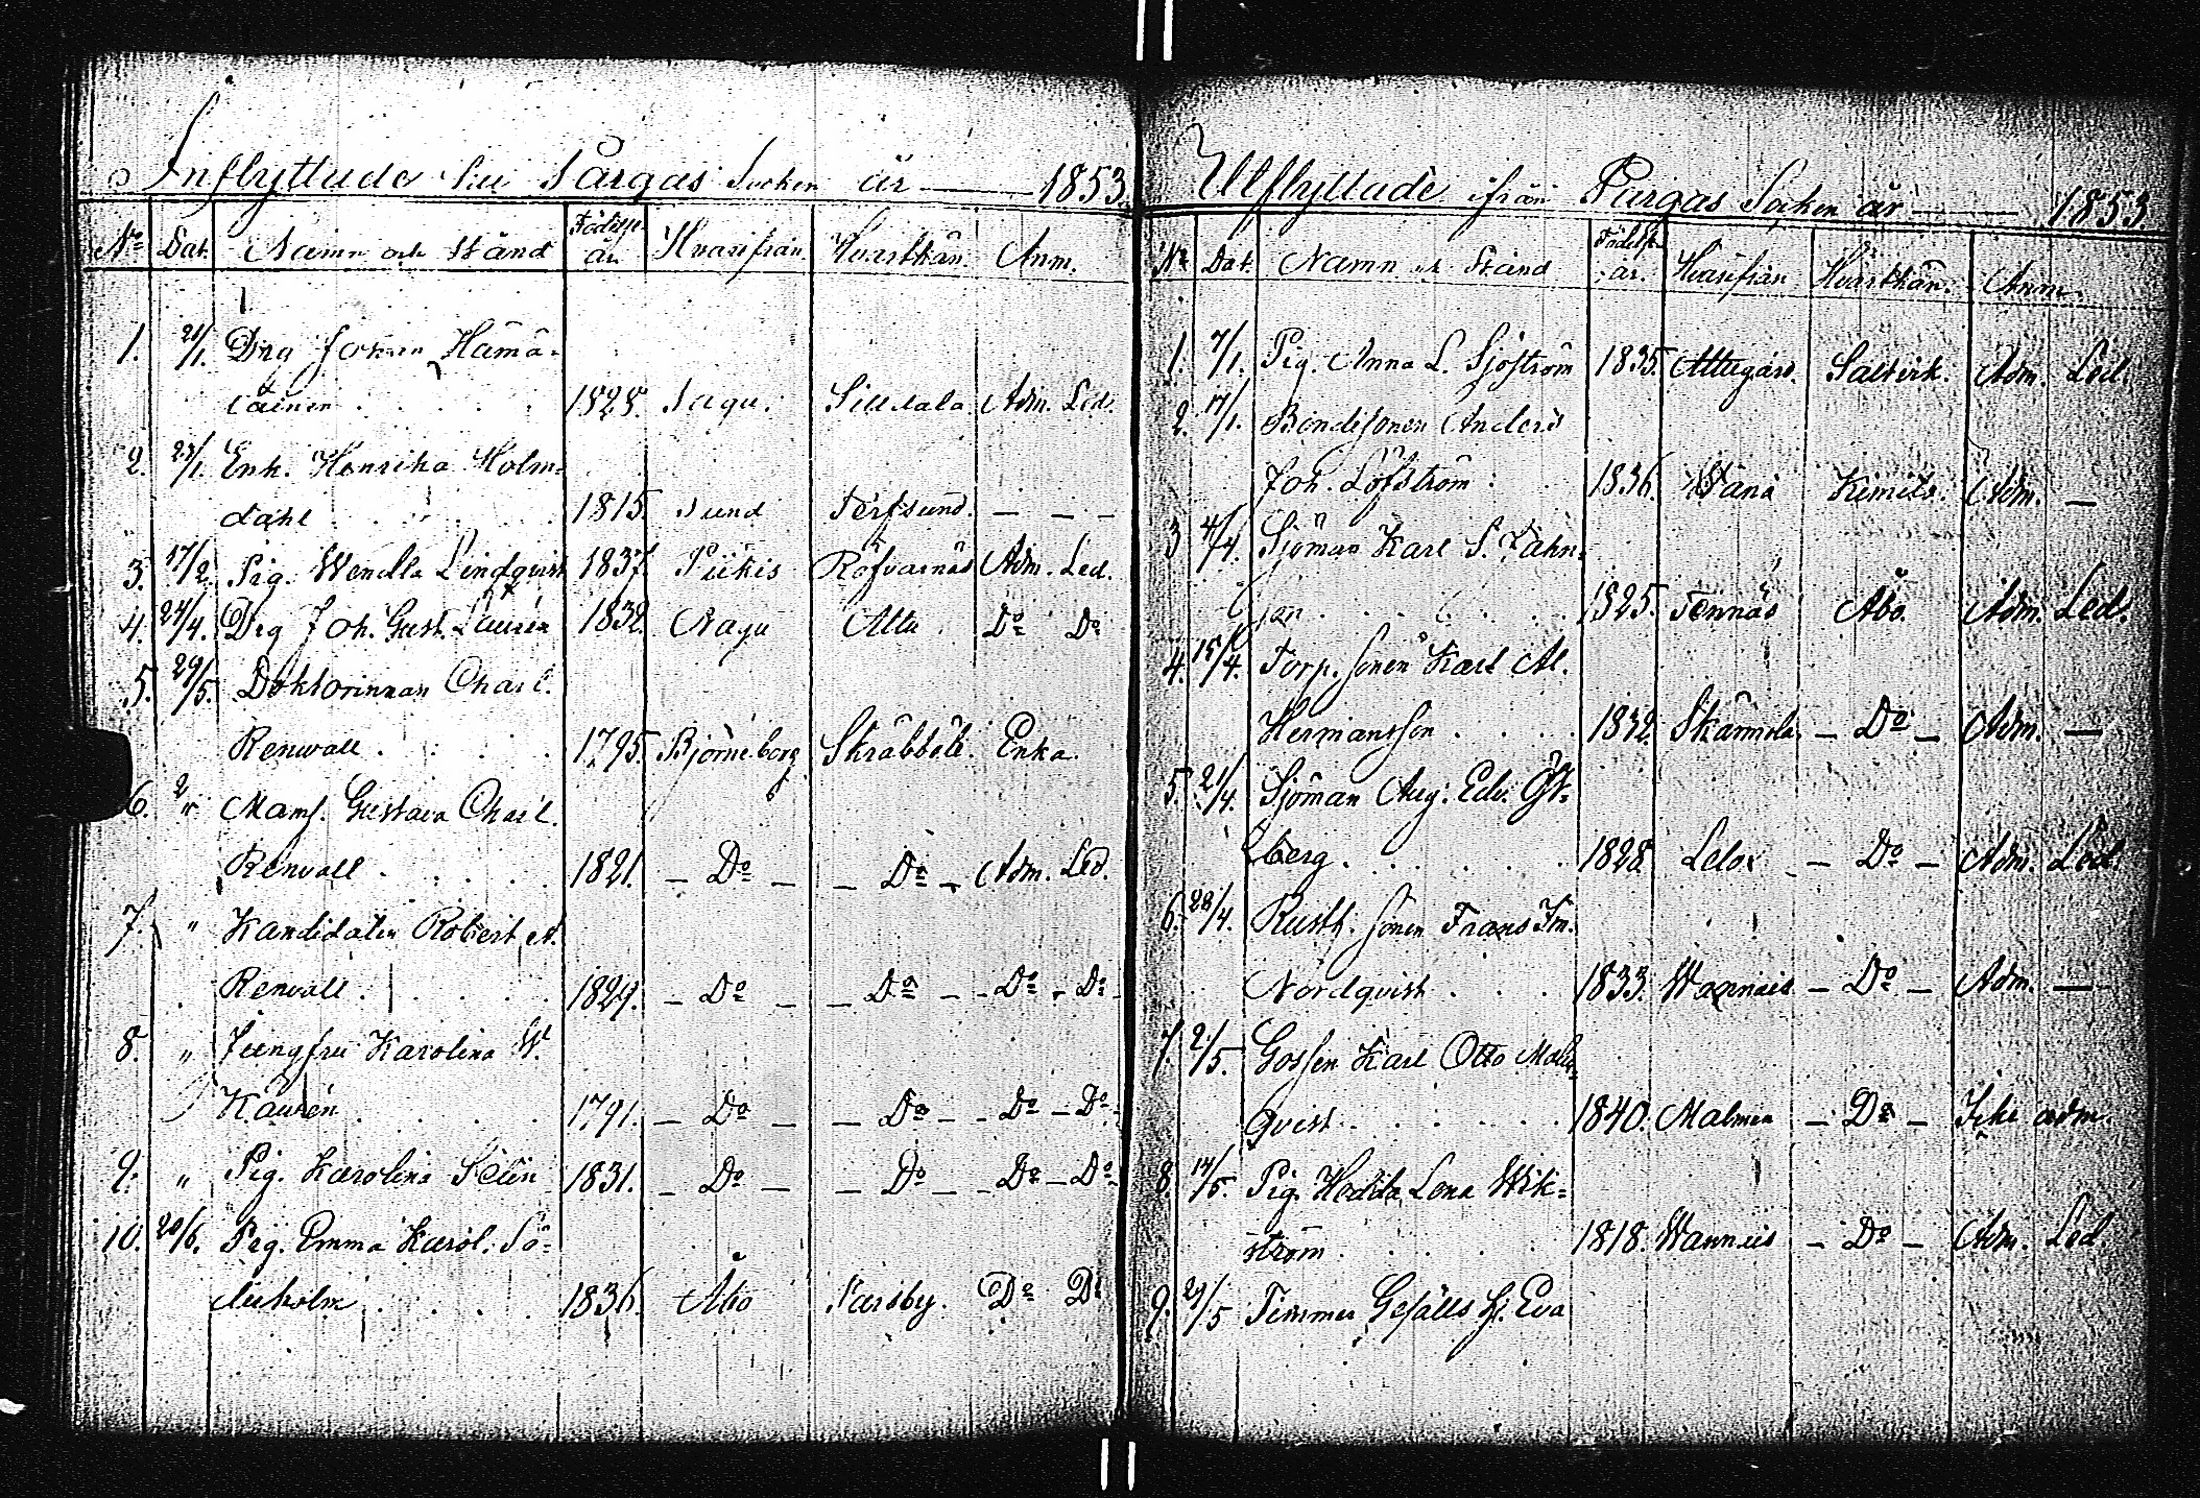 Inflyttade till Pargas Socken år — 1853.
No Dat. Namn och Stånd Födelse år Hvarifrån Hvarthän Anm.
1. 21/1. Drg Johan Hämä-
läinen . . . . 1828. Sagu. Sill dala Adm. Led.
2. 28/1. Enk. Henrika Holm-
dahl . . . . 1815. Sund Terfsund. — — —
3. 17/2. Pig. Wendla Lindqvist 1837. Piikis Röfvarnäs Adm. Led.
4. 24/4. Drg Joh. Gust. Laurén 1832. Nagu Attu Do Do
5. 29/5. Doktorinnan Charl.
Renwall . . . . 1795. Björneborg Skräbböle. Enka.
6. " Mamf. Gustava Charl.
Renvall . . . . 1821. — Do — — Do — Adm. Led.
7. " Kandidaten Robert A.
Renvall . . . . 1829. — Do — — Do — - Do - Do
8. " Jungfru Karolina W.
Kaurén . . . . 1791. — Do — — Do — - Do — Do
9. " Pig. Karolina Selin 1831. — Do — — Do — - Do — Do
10. 20/6. Pig. Emma Karol. Sö-
derholm . . . . 1836. Åbo Parsby. Do Do
Utflyttade ifrån Pargas Socken år — 1853.
No Dat. Namn och Stånd Födelse år. Hvarifrån Hvarthän. Anm.
1. 7/1. Pig. Anna L. Sjöström 1835. Attugård. Saltvik. Adm. Led.
2. 17/1. Bondesonen Anders
Joh. Löfström . 1836. Wånå Kimito. Adm. —
3 4/4. Sjöman Karl S. Lahn-
. . . . 1825. Tennäs Åbo. Adm. Led.
4. 15/4. Torp. sonen Karl Al.
Hermansson . . . . 1832. Skärmola — Do — Adm. —
5. 21/4. Sjöman Aug. Edv. Öst-
berg . . . . 1828. Lelox — Do — Adm. Led.
6. 28/4. Rusth. sonen Frans Im.
Nordqvist . . . 1833. Wannais — Do — Adm. —
7. 2/5. Gossen Karl Otto Malm-
qvist . . . . 1840. Malmen — Do — Icke adm.
8. 14/5. Pig. Hedda Lena Wik-
ström . . . . 1818. Wannais — Do — Adm. Led
9. 21/5 Timmer Gesälls h. Eva